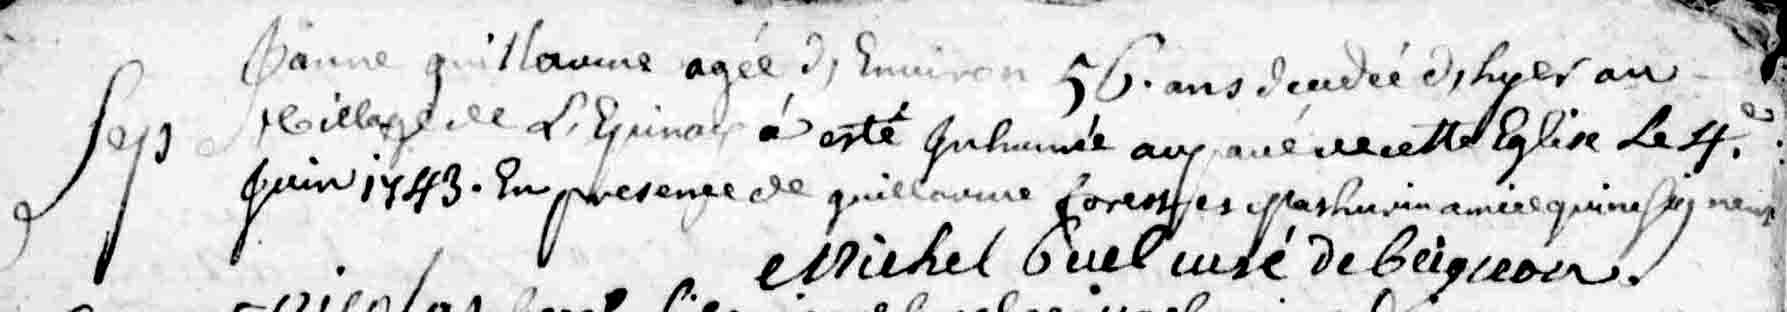 Janne guillaume agée d, Environ 56. ans decedée d, hyer au
Sep Village de L, Epinay á esté Inhumée au pavé de cette Eglise Le 4.e
Juin 1743. En presence de guillaume forest, es Mathurin amice qui ne signent
Michel curé de beignon.